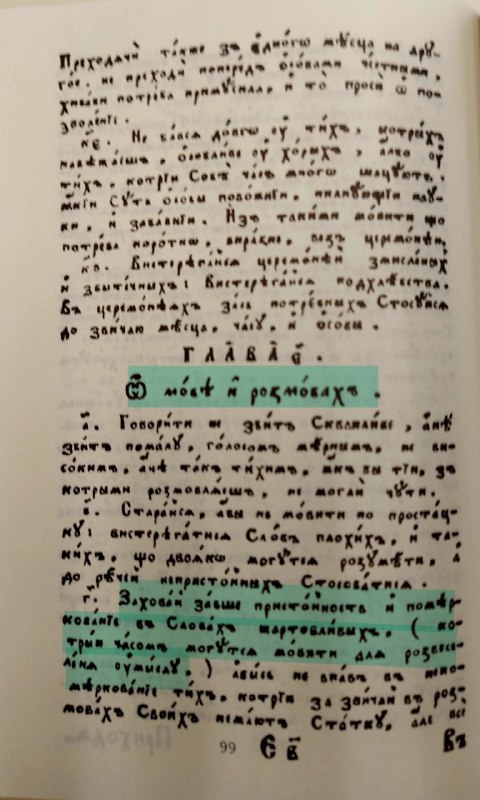 Преходячи та́кже зъ є҆дно́гѡ мѣ́сца на дрꙋ-
го́е, не преходѝ поперє́дъ ѻ҆со́бами че́стными,
хиба́би потре́ба примꙋ́сила, и҆ то̀ проси́ ѿ по-
зволе́нїе.
к҃є. Не ба́вса до́вго ꙋ҆ ти́хъ, котры́хъ
навѣжа́ешъ, ѻ҆собли́ве ꙋ҆ хо́рыхъ, а҆лбо ꙋ҆
ти́хъ, котрїи Собѣ̀ ча́съ мно́гѡ шацꙋ́ютъ.
Сꙋ́ть ѻ҆со́бы пова́жнїи, пилнꙋ́ющїи наꙋ́-
ки, и҆ заба́внїи. И҆зъ таки́ми мо́вити що
потре́ба коро́ткѡ, вира́зне, безъ церемо́нѣи.
к҃ѕ. Вистерѣга́йса церемо́нѣи зми́слѧныхъ
и҆ збы́точныхъ: Вистерѣга́йса подхлѣ́бства.
Въ церемо́нѣѧхъ за́сь потре́бныхъ Стосꙋ́йсѧ
до звича́ю мѣ́сца, ча́сꙋ, и҆ ѻ҆со́бы.
ГЛАВА̀ є҃.
Ѿ мо́вѣ и҆ розмо́вахъ.
а҃. Говори́ти не зби́тъ Скваплі́ве, а҆нѣ̀
зби́тъ пома́лꙋ, го́лосомъ мѣ́рнымъ, не ви-
со́кимъ, а҆нѣ̀ та́къ ти́химъ, ꙗ҆къ бы тїи, зъ
котрыми розмовлѧ́ешъ, не могли́ чꙋ́ти.
в҃. Стара́йсѧ, абы не мо́вити по проста́ц-
кꙋ: вистерѣга́тисѧ Сло́въ плохи́хъ, и҆ та-
ки́хъ, що двоѧ́кѡ мо́гꙋтсѧ розꙋмѣ́ти, а҆
до рѣ́чей непристо́йныхъ Стосова́тисѧ.
г҃. Захова́й за́вше присто́йность и҆ помѣр-
кова́нїе въ Слова́хъ жартобли́выхъ, ( ко-
тры́и ча́сомъ мо́гꙋтсѧ мо́вити для розвесе-
ле́ня ᲂу҆мы́слꙋ, ) абы́сь не впа́въ въ непо-
мѣркова́нїе ти́хъ, котрїи за звича́й въ роз-
мо́вахъ Свои́хъ нема́ютъ Ста́ткꙋ, але всѐ
99
Є в҃
Въ